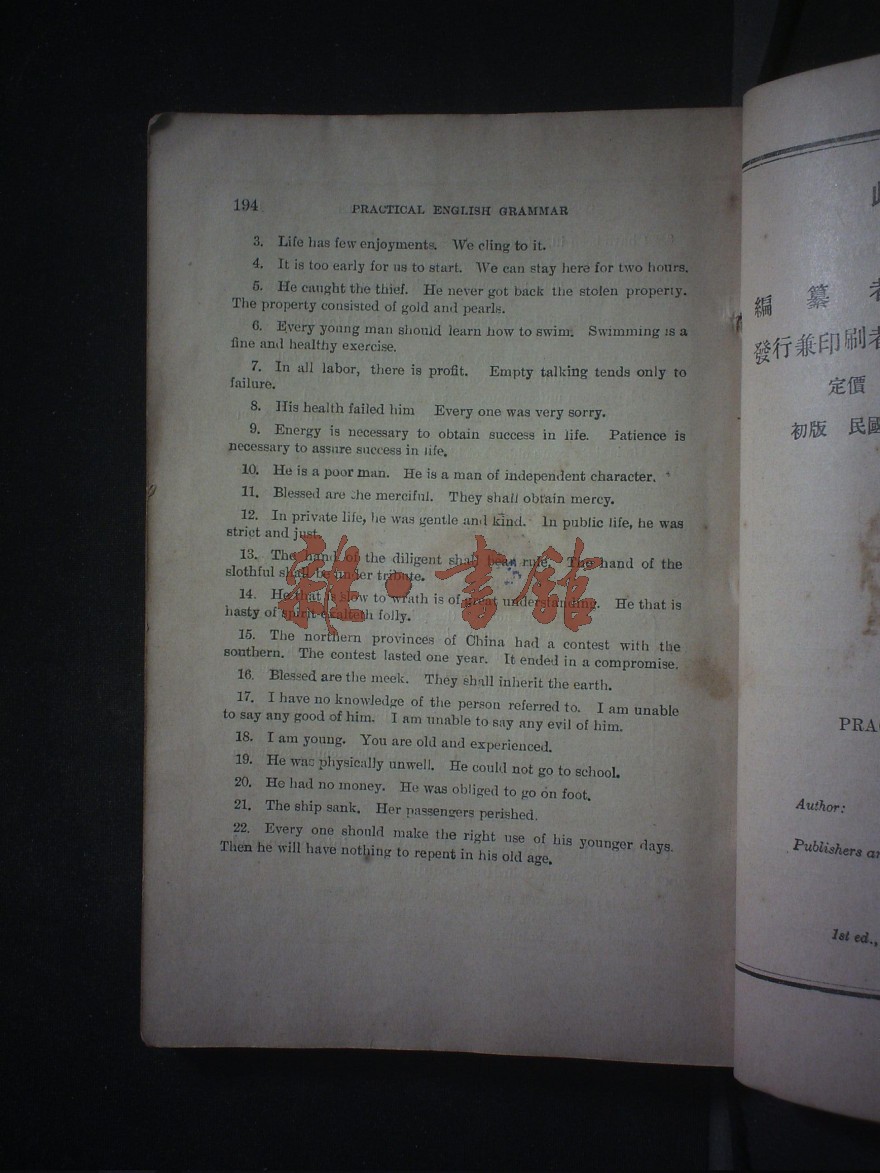 194
PRACTICAL ENGLISH GRAMMAR
3. Life has few enjoyments. We cling to it.
4. It is too early for us to start. We can stay here for two hours.
5. He caught the thief. He never got back the stolen property.
The property consisted of gold and pearls.
6. Every young man should learn how to swim. Swimming is a
fine and healthy exercise.
7. In all labor, there is profit. Empty talking tends only to
failure.
8. His health failed him Every one was very sorry.
9. Energy is necessary to obtain success in life. Patience is
necessary to assure success in life.
10. He is a poor man. He is a man of independent character.
11. Blessed are the merciful. They shall obtain mercy.
12. In private life, he was gentle and kind. In public life, he was
strict and just.
13. The hand of the diligent shall bear rule. The hand of the
slothful shall be under tribute.
14. He that is slow to wrath is of great understanding. He that is
hasty of spirit exalteth folly.
15. The northern provinces of China had a contest with the
southern. The contest lasted one year. It ended in a compromise.
16. Blessed are the meek. They shall inherit the earth.
17. I have no knowledge of the person referred to. I am unable
to say any good of him. I am unable to say any evil of him.
18. I am young. You are old and experienced.
19. He was physically unwell. He could not go to school.
20. He had no money. He was obliged to go on foot.
21. The ship sank. Her passengers perished.
22. Every one should make the right use of his younger days.
Then he will have nothing to repent in his old age.
雜·書館
編纂者
發行兼印刷者
定價
初版 民國
PRA
Author:
Publishers an
1st ed.,